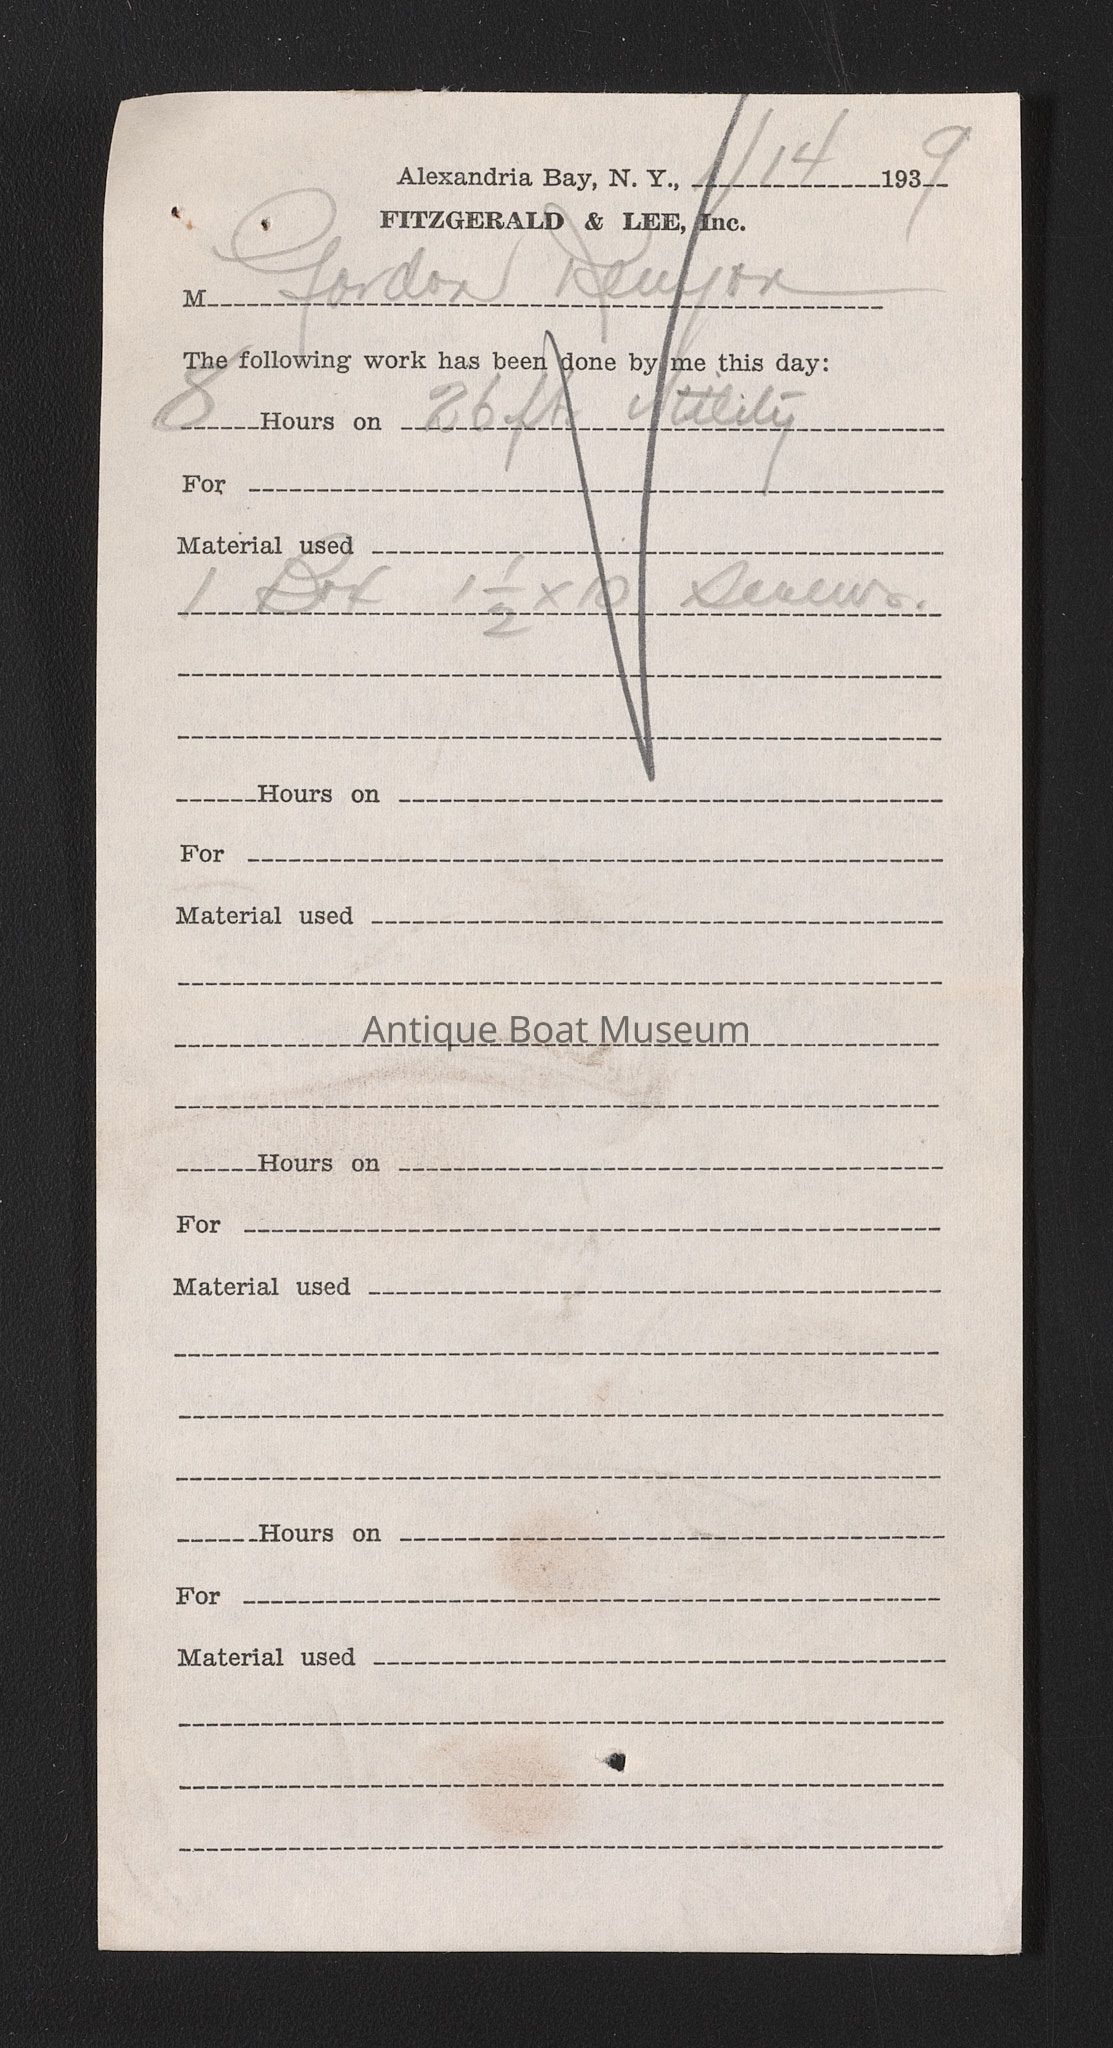 Alexandria Bay, N. Y., 1/14 1939
FITZGERALD & LEE, Inc.
M Gordon Kenyon
The following work has been done by me this day:
8 Hours on 26 ft. Utility
For
Material used
1 Box 1 1/2 x 10 Screws.
Hours on
For
Material used
Antique Boat Museum
Hours on
For
Material used
Hours on
For
Material used